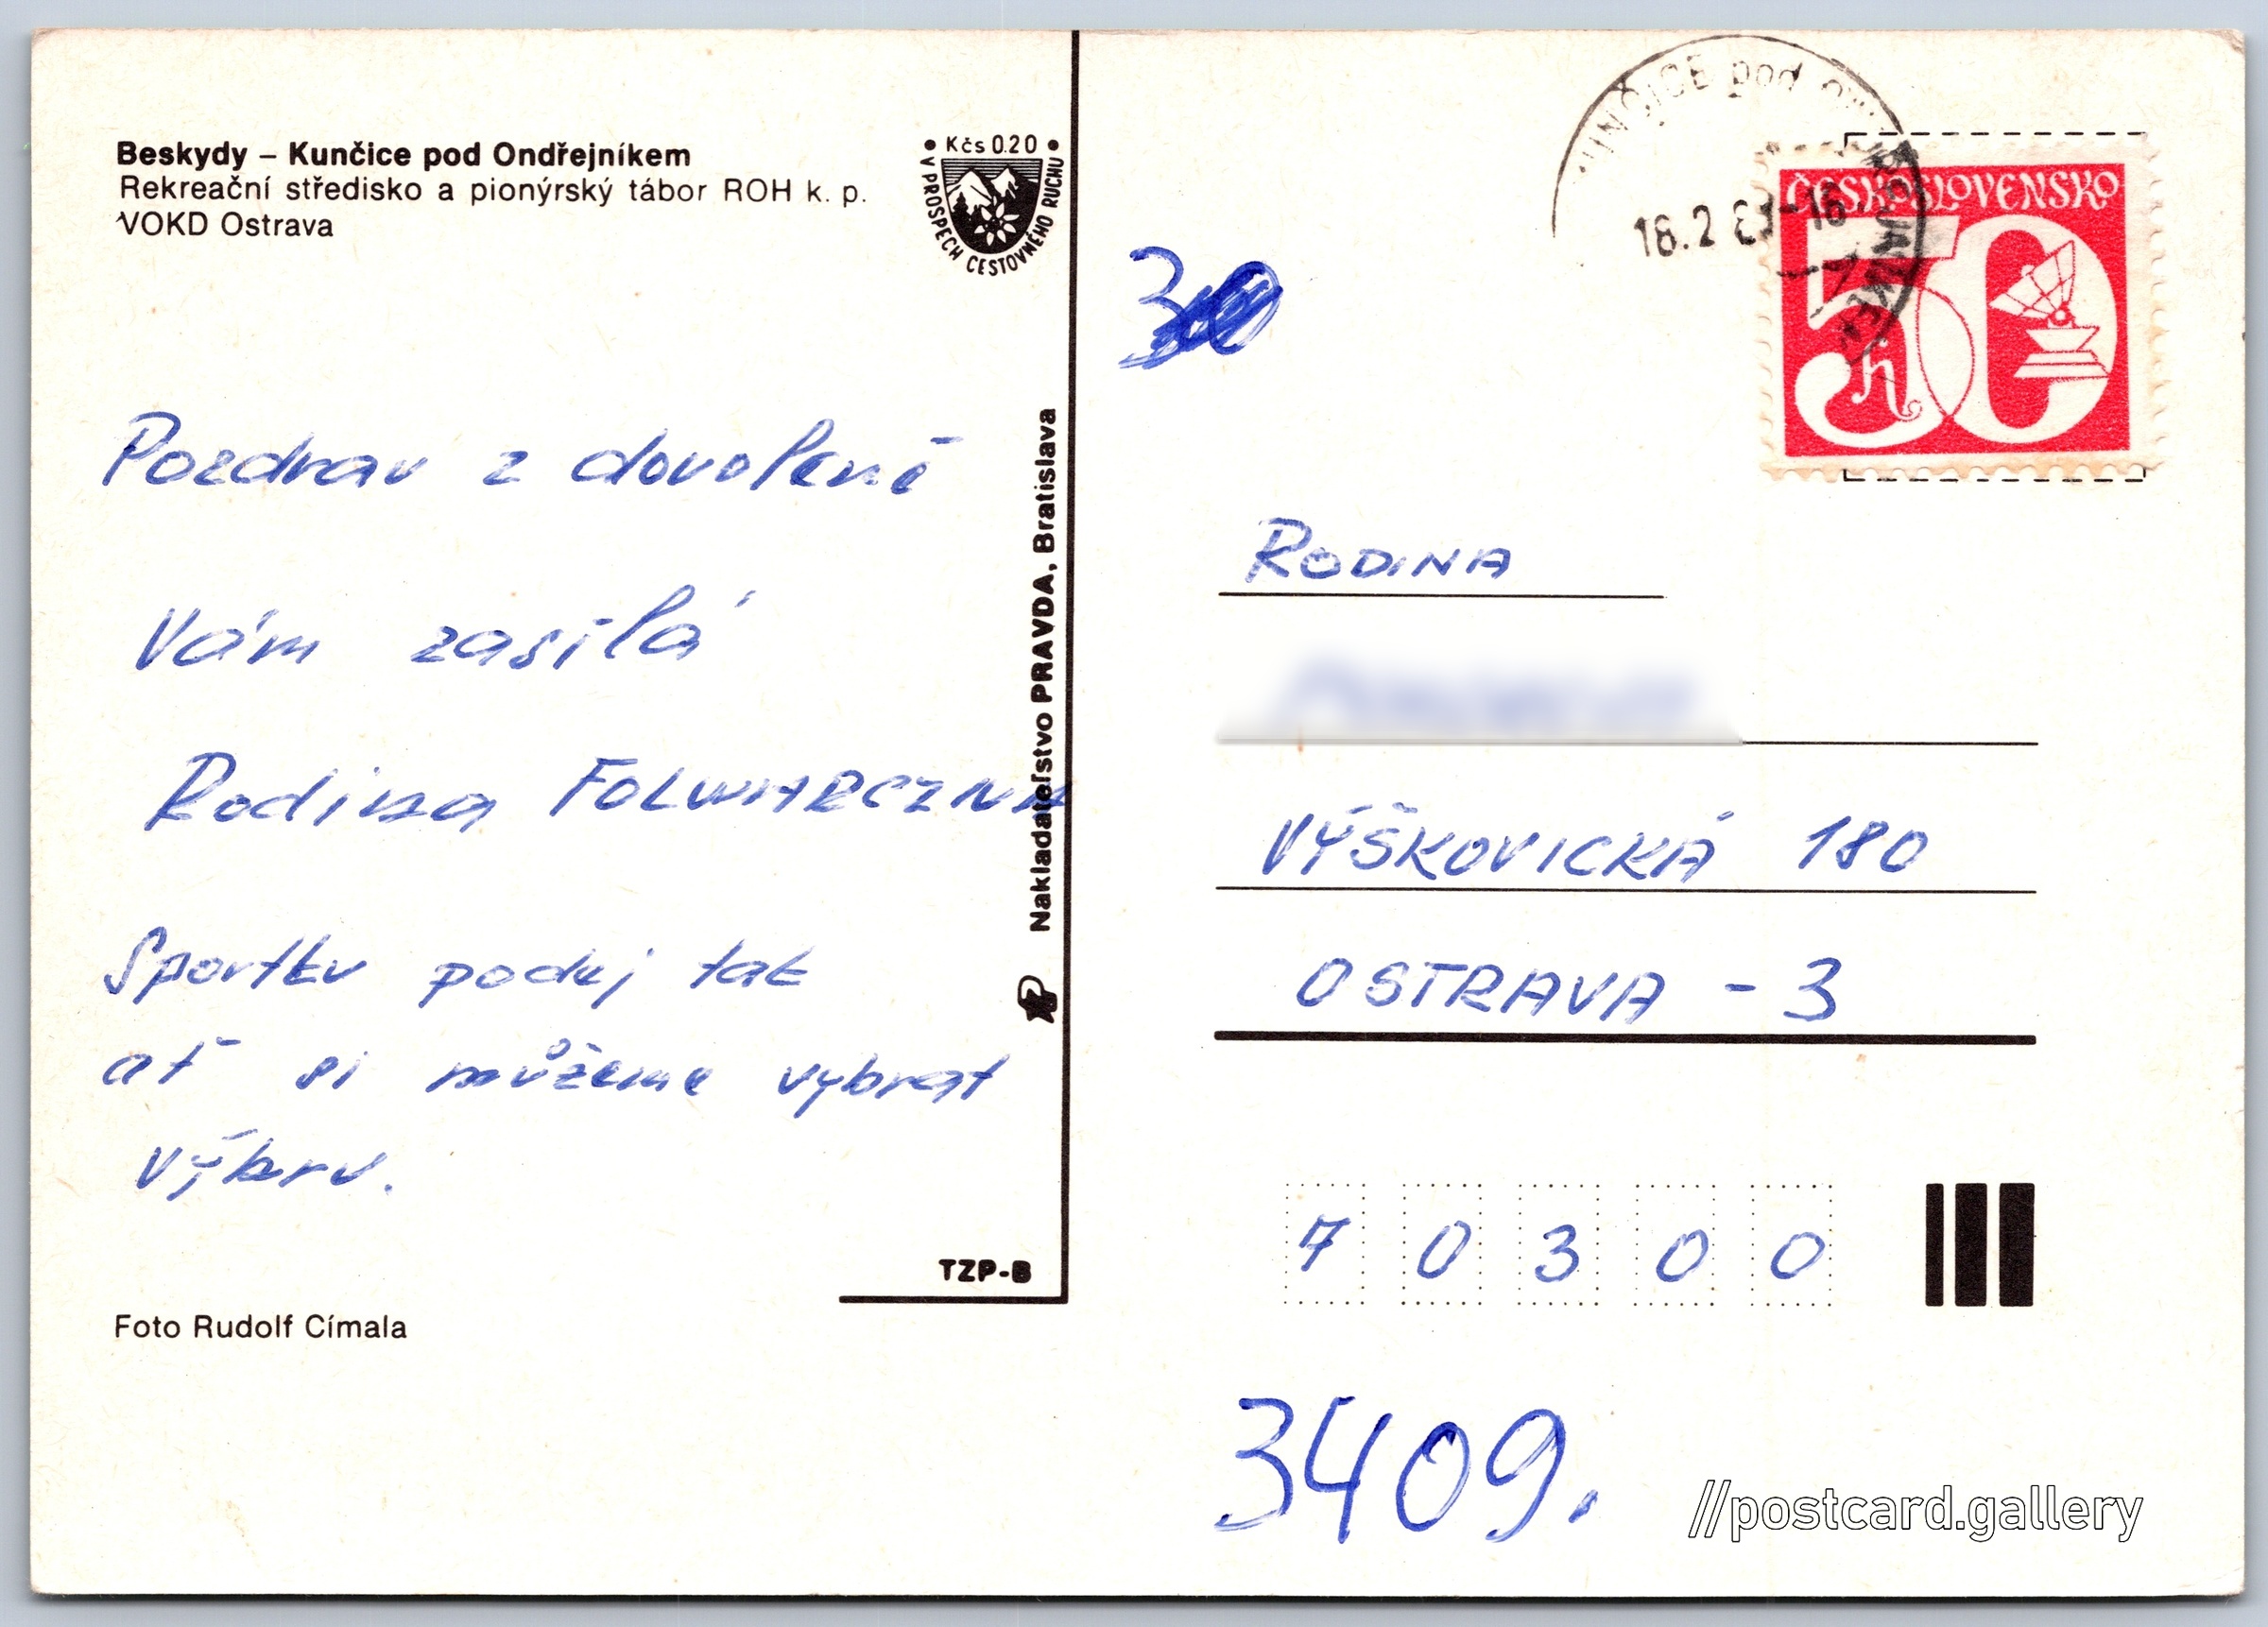 Beskydy – Kunčice pod Ondřejníkem
Rekreační středisko a pionýrský tábor ROH k. p.
VOKD Ostrava
• Kčs 0.20 •
V PROSPECH CESTOVNÉHO RUCHU
Pozdrav z dovolené
Vám zasílá
Rodina
Sportku podej tak
ať si můžeme vybrat
výhru.
Nakladateľstvo PRAVDA, Bratislava
TZP-B
Foto Rudolf Címala
pod
18.2
-16
ČESKOSLOVENSKO
50
h
RODINA
VÝŠKOVICKÁ 180
OSTRAVA - 3
7 0 3 0 0
3409.
//postcard.gallery